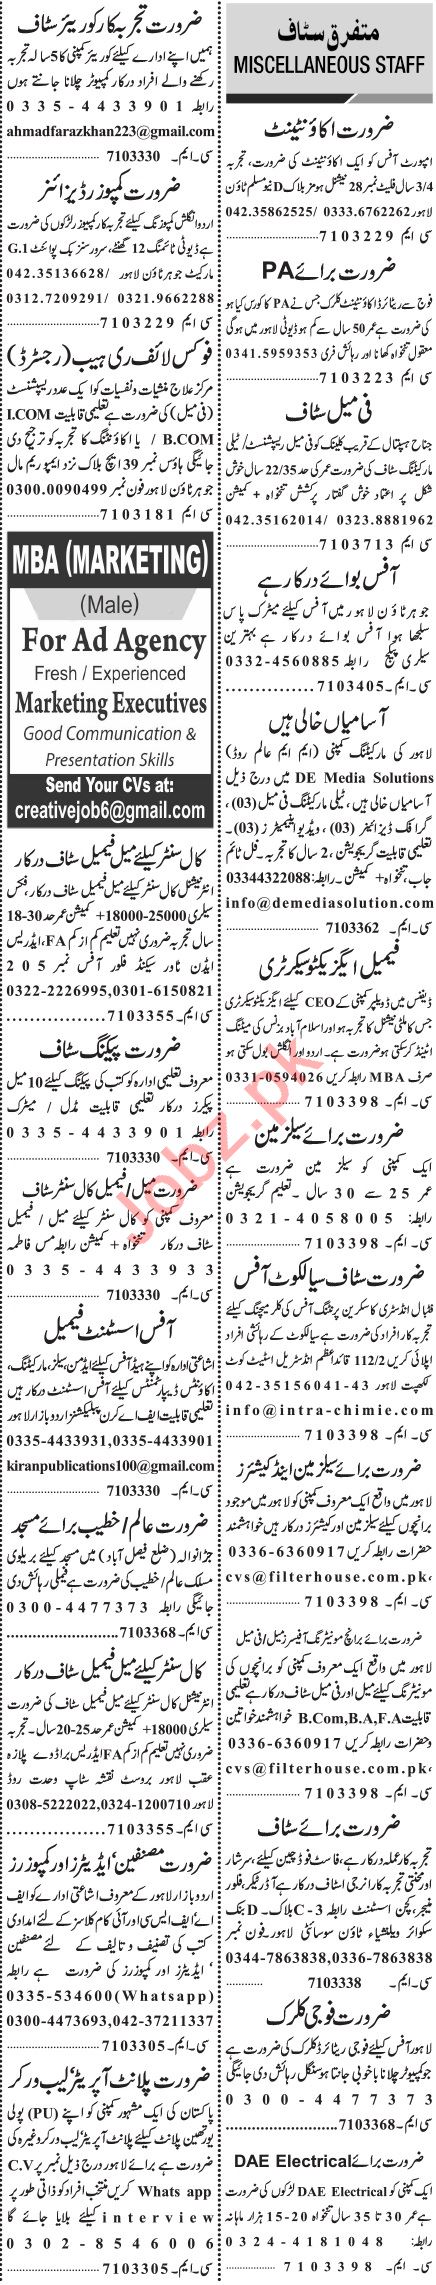 متفرق سٹاف
MISCELLANEOUS STAFF
ضرورت اکاؤنٹینٹ
امپورٹ آفس کو ایک اکاؤنٹینٹ کی ضرورت، تجربہ
3/4 سال فلیٹ نمبر 28 نیشنل ہومز بلاک D نیو مسلم ٹاؤن
لاہور 0333.6762262 /042.35862525
سی ایم 7103229
ضرورت برائے PA
فوج سے ریٹائرڈ اکاؤنٹینٹ کلرک جس نے PA کا کورس کیا ہو
کی ضرورت ہے عمر 50 سال سے کم ہو ڈیوٹی لاہور میں ہوگی
معقول تنخواہ کھانا اور رہائش فری 0341.5959353
سی ایم 7103223
فی میل سٹاف
جناح ہسپتال کے قریب کلینک کو فی میل ریسپشنسٹ / ٹیلی
مارکیٹنگ سٹاف کی ضرورت عمر کی حد 22/35 سال خوش
شکل پر اعتماد خوش گفتار پرکشش تنخواہ + کمیشن
0323.8881962 /042.35162014
سی ایم 7103713
آفس بوائے درکار ہے
جوہر ٹاؤن لاہور میں آفس کیلئے میٹرک پاس
سلجھا ہوا آفس بوائے درکار ہے بہترین
سیلری پیکج رابطہ 0332-4560885
سی۔ایم۔7103405
آسامیاں خالی ہیں
لاہور کی مارکیٹنگ کمپنی (ایم ایم عالم روڈ)
DE Media Solutions میں درج ذیل
آسامیاں خالی ہیں، ٹیلی مارکیٹنگ فی میل (03)،
گرافک ڈیزائنر (03)، ویڈیو اینیمیٹرز (03)۔
تعلیمی قابلیت گریجویشن، 2 سال کا تجربہ۔ فل ٹائم
جاب، تنخواہ + کمیشن۔ رابطہ: 03344322088
info@demediasolution.com
سی۔ایم۔ 7103362
فیمیل ایگزیکٹو سیکرٹری
ڈیفنس میں ڈویلپر کمپنی کے CEO کیلئے ایگزیکٹو سیکرٹری
جس کا ملٹی نیشنل کا تجربہ ہو اور اسلام آباد بزنس کی میٹنگ
اٹینڈ کرسکتی ہو ضرورت ہے۔ اردو اور انگلش بول سکتی ہو
صرف MBA رابطہ کریں 0331-0594026
سی۔ایم۔ 7103398
ضرورت برائے سیلز مین
ایک کمپنی کو سیلز مین ضرورت ہے
عمر 25 سے 30 سال۔ تعلیم گریجویشن
رابطہ: 0321-4058005
سی۔ایم۔ 7103398
ضرورت سٹاف سیالکوٹ آفس
فٹبال انڈسٹری کا سکرین پرنٹنگ آفس کی کلر میچنگ کیلئے
تجربہ کار افراد کی ضرورت ہے سیالکوٹ کے رہائشی افراد
اپلائی کریں 112/2 قائداعظم انڈسٹریل اسٹیٹ کوٹ
لکھپت لاہور 042-35156041-43
info@intra-chimie.com
سی۔ایم۔ 7103398
ضرورت برائے سیلز مین اینڈ کیشئرز
لاہور میں واقع ایک معروف کمپنی کو لاہور میں موجود
برانچوں کیلئے سیلز مین اور کیشئرز درکار ہیں خواہشمند
حضرات رابطہ کریں 0336-6360917
cvs@filterhouse.com.pk،
سی۔ایم۔ 7103398
ضرورت برائے برانچ مونیٹرنگ آفیسرز میل / فی میل
لاہور میں واقع ایک معروف کمپنی کو برانچوں کی
مونیٹرنگ کیلئے میل اور فی میل سٹاف درکار ہے تعلیمی
قابلیت B.Com,B.A,F.A خواہشمند خواتین
وحضرات رابطہ کریں 0336-6360917
cvs@filterhouse.com.pk،
سی۔ایم۔ 7103398
ضرورت برائے سٹاف
تجربہ کار عملہ درکار ہے، فاسٹ فوڈ چین کیلئے، سرشار
اور محنتی تجربہ کار انرجی اسٹاف درکار ہے آرڈر ٹیکر، فلور
منیجر، کچن اسسٹنٹ رابطہ 3-C بلاک۔ D بنک
سکوائر ویلنشیاء ٹاؤن سوسائٹی لاہور۔ فون نمبر
0336-7863838,0344-7863838
سی۔ایم۔ 7103338
ضرورت فوجی کلرک
لاہور آفس کیلئے فوجی ریٹائرڈ کلرک کی ضرورت ہے
جو کمپیوٹر چلانا باخوبی جانتا ہو سنگل رہائش دی جائیگی
0300-4477373
سی۔ایم۔7103368
ضرورت برائے DAE Electrical
ایک کمپنی کو DAE Electrical لڑکوں کی ضرورت
ہے عمر 30 تا 35 سال تنخواہ 20-15 ہزار ماہانہ
رابطہ: 0324-4181048
سی۔ایم۔ 7103398
ضرورت تجربہ کار کوریئر سٹاف
ہمیں اپنے ادارے کیلئے کوریئر کمپنی کا 5 سالہ تجربہ
رکھنے والے افراد درکار کمپیوٹر چلانا جانتے ہوں
رابطہ 0335-4433901
ahmadfarazkhan223@gmail.com
سی۔ایم۔ 7103330
ضرورت کمپوزر ڈیزائنر
اردو انگلش کمپوزنگ کیلئے تجربہ کار کمپوزر لڑکوں کی ضرورت
ہے ڈیوٹی ٹائمنگ 12 گھنٹے، سرورسز بک پوائنٹ G.1
مارکیٹ جوہر ٹاؤن لاہور /042.35136628
0321.9662288 /0312.7209291
سی ایم 7103229
فوکس لائف ری ہیب (رجسٹرڈ)
مرکز علاج منشیات ونفسیات کو ایک عدد ریسپشنسٹ
(فی میل) کی ضرورت ہے تعلیمی قابلیت I.COM
/ B.COM یا اکاؤنٹنگ کا تجربہ کو ترجیح دی
جائیگی ہاؤس نمبر 39 ایچ بلاک نزد ایمپوریم مال
جوہر ٹاؤن لاہور فون نمبر 0300.0090499
سی ایم 7103181
MBA (MARKETING)
(Male)
For Ad Agency
Fresh / Experienced
Marketing Executives
Good Communication &
Presentation Skills
Send Your CVs at:
creativejob6@gmail.com
کال سنٹر کیلئے میل فیمیل سٹاف درکار
انٹرنیشنل کال سنٹر کیلئے میل فیمیل سٹاف درکار، فکس
سیلری 25000-18000+ کمیشن عمر حد 30-18
سال تجربہ ضروری نہیں تعلیم کم از کم FA، ایڈریس
ایڈن ٹاور سیکنڈ فلور آفس نمبر 205
0322-2226995,0301-6150821
سی۔ایم۔7103355
ضرورت پیکنگ سٹاف
معروف تعلیمی ادارہ کو کتب کی پیکنگ کیلئے 10 میل
پیکرز درکار تعلیمی قابلیت مڈل / میٹرک
رابطہ 0335-4433901
سی۔ایم۔ 7103330
ضرورت میل / فیمیل کال سنٹر سٹاف
معروف کمپنی کو کال سنٹر کیلئے میل / فیمیل
سٹاف درکار تنخواہ + کمیشن رابطہ مس فاطمہ
0335-4433933
سی۔ایم۔ 7103330
آفس اسسٹنٹ فیمیل
اشاعتی ادارہ کو اپنے ہیڈ آفس کیلئے ایڈمن، سیلز، مارکیٹنگ،
اکاؤنٹس ڈیپارٹمنٹس کیلئے آفس اسسٹنٹ درکار ہیں
تعلیمی قابلیت ایف اے کرن پبلیکیشنز اردو بازار لاہور
0335-4433931,0335-4433901
kiranpublications100@gmail.com
سی۔ایم۔ 7103330
ضرورت عالم / خطیب برائے مسجد
جڑانوالہ (ضلع فیصل آباد) میں مسجد کیلئے بریلوی
مسلک عالم / خطیب کی ضرورت ہے فیملی رہائش دی
جائیگی رابطہ 0300-4477373
سی۔ایم۔7103368
کال سنٹر کیلئے میل فیمیل سٹاف درکار
انٹرنیشنل کال سنٹر کیلئے میل فیمیل سٹاف کی ضرورت
سیلری 18000+ کمیشن عمر حد 25-20 سال۔ تجربہ
ضروری نہیں تعلیم کم از کم FA ایڈریس براڈوے پلازہ
عقب لاہور بروسٹ نقشہ سٹاپ وحدت روڈ
لاہور 0308-5222022,0324-1200710
سی۔ایم۔7103355
ضرورت مصنفین، ایڈیٹرز اور کمپوزرز
اردو بازار لاہور کے معروف اشاعتی ادارے کو ایف
اے، ایف ایس سی اور آئی کام کلاسز کے لئے امدادی
کتب کی تصنیف و تالیف کے لئے مصنفین
، ایڈیٹرز اور کمپوزرز کی ضرورت ہے رابطہ
0335-534600(Whatsapp)
0300-4473693,042-37211337
سی۔ایم۔7103305
ضرورت پلانٹ آپریٹر، لیب ورکر
پاکستان کی ایک مشہور کمپنی کو اپنے (PU) پولی
یورتھین پلانٹ کیلئے پلانٹ آپریٹر، لیب ورکر وغیرہ کی
ضرورت ہے برائے لاہور درج ذیل نمبر پر C.V
Whats app کریں منتخب افراد کو ذاتی طور پر
interview کیلئے بلایا جائے گا
0302-8546006
سی۔ایم۔7103305
Jobz.pk